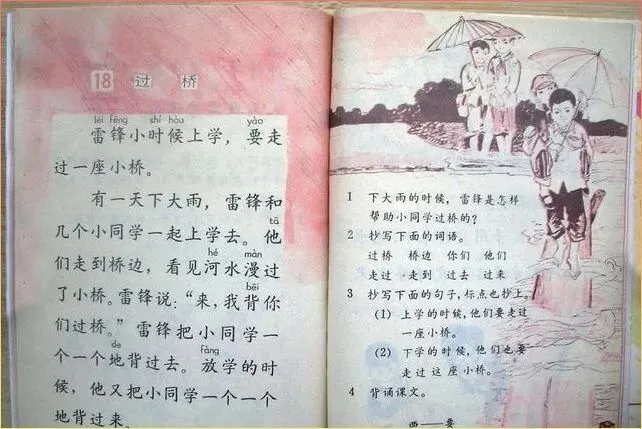 18 过桥
léi fēng shí hòu yào
雷锋小时候上学，要走
过一座小桥。
有一天下大雨，雷锋和
tā
几个小同学一起上学去。他
hé màn
们走到桥边，看见河水漫过
bēi
了小桥。雷锋说：“来，我背你
们过桥。”雷锋把小同学一
de fàng
个一个地背过去。放学的时
候，他又把小同学一个一个
地背过来。
1 下大雨的时候，雷锋是怎样
帮助小同学过桥的？
2 抄写下面的词语。
过桥 桥边 你们 他们
走过 走到 过去 过来
3 抄写下面的句子，标点也抄上。
(1) 上学的时候，他们要走过
一座小桥。
(2) 下学的时候，他们也要
走过这座小桥。
4 背诵课文。
西——要